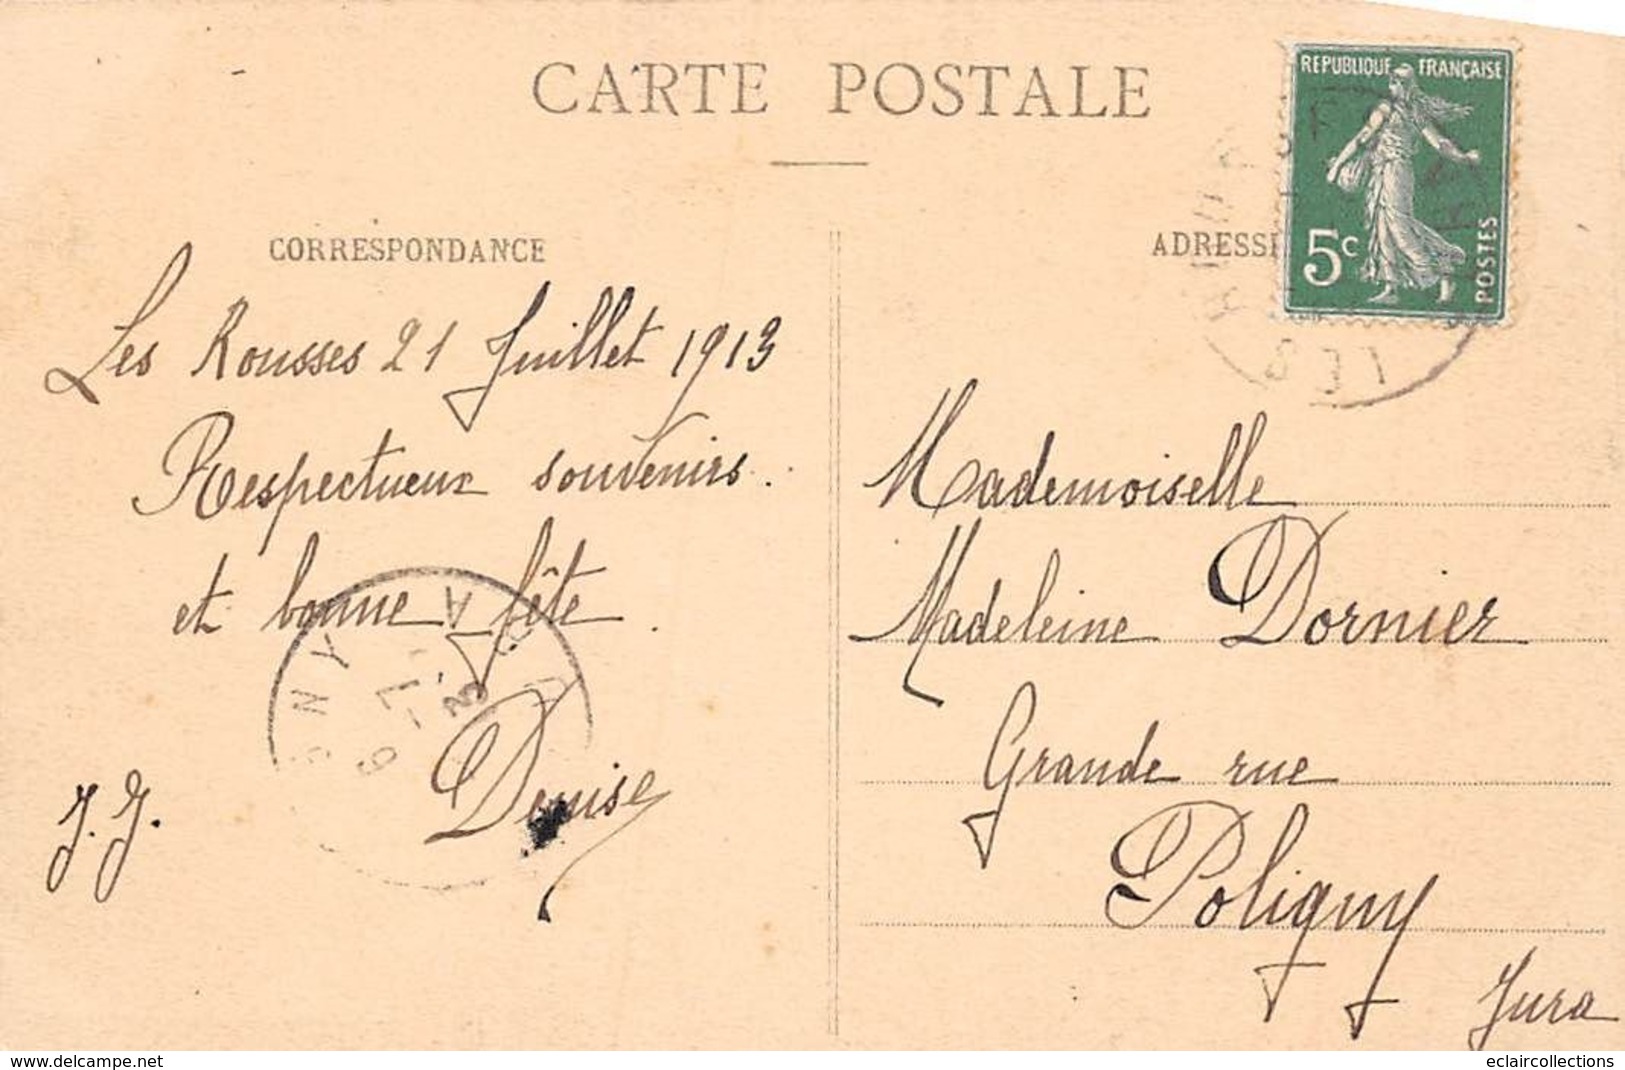 CARTE POSTALE
REPUBLIQUE FRANÇAISE
5c
POSTES
CORRESPONDANCE
Les Rousses 21 Juillet 1913
Respectueux souvenirs.
et bonne fête.
Denise
J. J.
ADRESSE
Mademoiselle
Madeleine Dornier
Grande rue
Poligny
Jura
LES
www.delcampe.net
eclaircollections